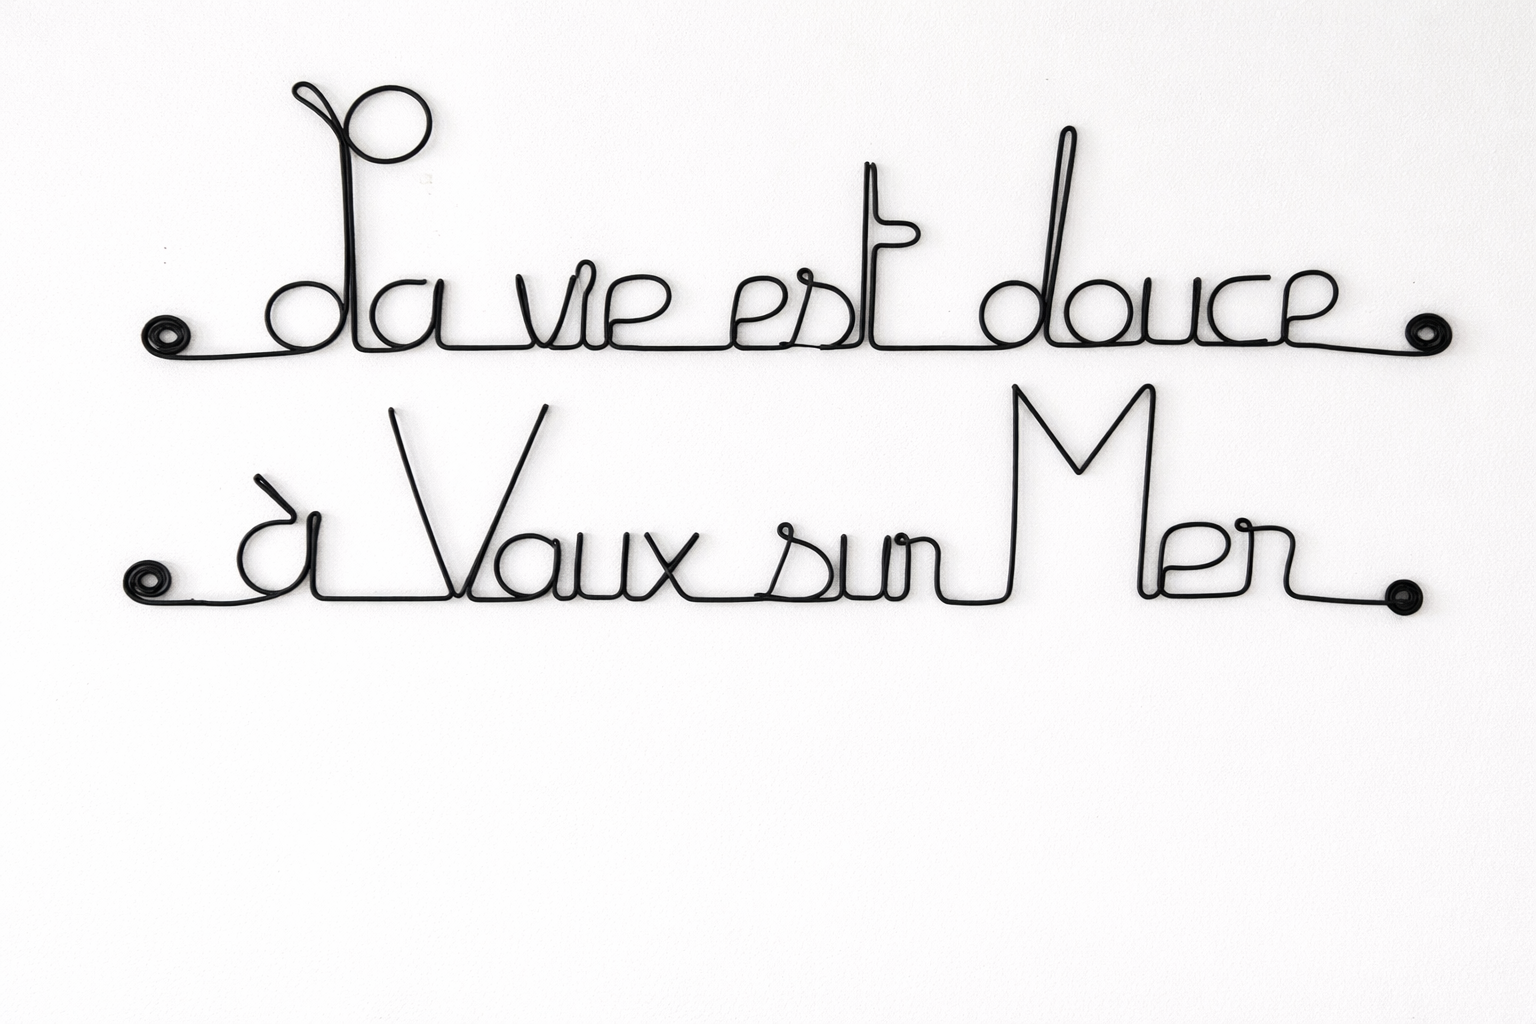 La vie est douce
à Vaux sur Mer